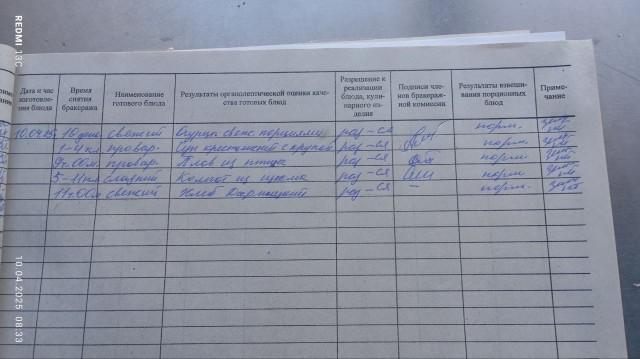 REDMI 13C
10.04.2025 08:33
Дата и час изготовления блюда
Время снятия бракеража
Наименование готового блюда
Результаты органолептической оценки качества готовых блюд
Разрешение к реализации блюда, кулинарного изделия
Подписи членов бракеражной комиссии
Результаты взвешивания порционных блюд
Примечание
10.04.25 10 день свежий Огурец свеж порциями раз-ся норм.
1-4 кл провар. Суп крестьянский с крупой раз-ся норм.
провар. Плов из птицы раз-ся норм.
5-11 кл сладкий Компот из раз-ся норм
свежий Хлеб Дарницкий раз-ся норм.